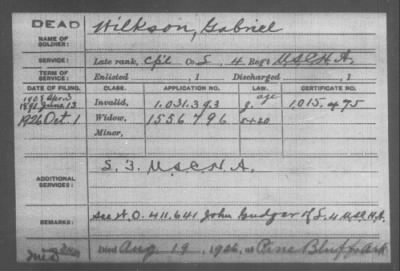 DEAD
NAME OF SOLDIER: Wilkson, Gabriel
SERVICE: Late rank, Cpl Co. S, 4 Reg't U.S.C.H.A.
TERM OF SERVICE: Enlisted , 1 Discharged , 1
DATE OF FILING. CLASS. APPLICATION NO. LAW. CERTIFICATE NO.
Invalid, 1.031.393 1015.475
1926 Oct 1 Widow, 1556796
Minor,
ADDITIONAL SERVICES: S. 3. U.S.C.H.A.
REMARKS: See W.O. 411.641 John Gudger of S. 4 U.S.C.H.A.
Died Aug 19, 1926, at Pine Bluff, Ark